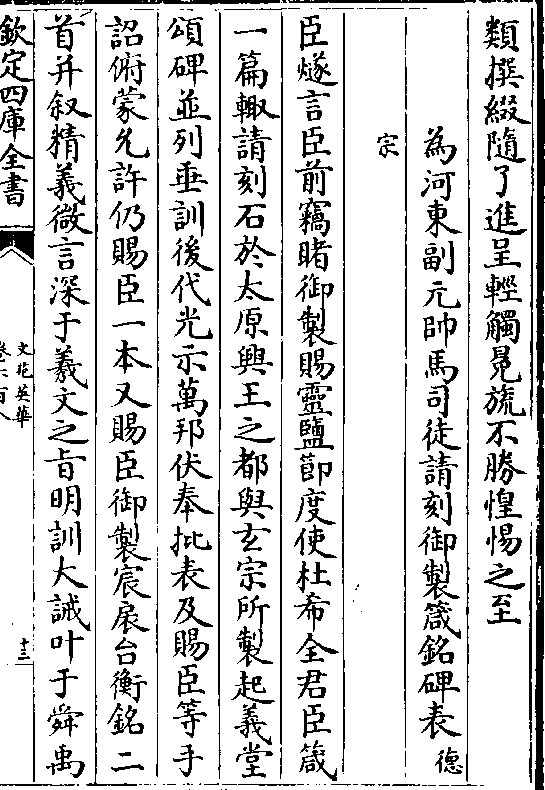 類撰綴隨了進呈輕觸冕旒不勝惶惕之至
為河東副元帥馬司徒請刻御製箴銘碑表德
宗
臣燧言臣前竊睹御製賜靈鹽節度使杜希全君臣箴
一篇輙請刻石於太原興王之都與玄宗所製起義堂
頌碑並列垂訓後代光示萬邦伏奉批表及賜臣等手
詔俯蒙允許仍賜臣一本又賜臣御製宸扆台衡銘二
首并叙精義微言深于羲文之旨明訓大誡叶于舜禹
欽定四庫全書
文苑英華
卷六百八
十二